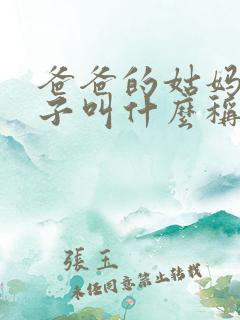 爸爸的姑妈
子叫什麼稱
張玉
未经同意禁止转载